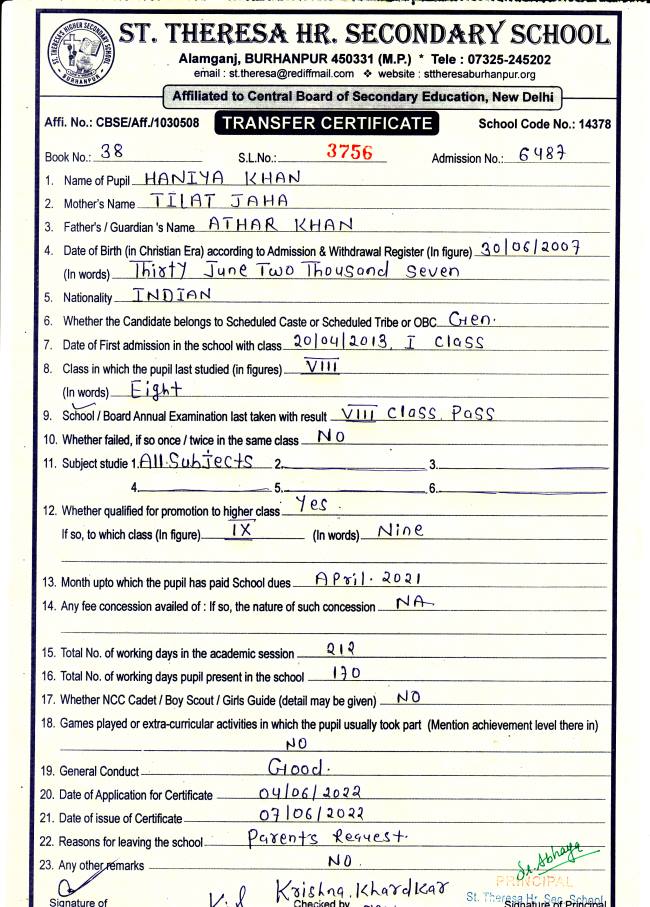 ST. THERESA HIGHER SECONDARY SCHOOL
BURHANPUR
ST. THERESA HR. SECONDARY SCHOOL
Alamganj, BURHANPUR 450331 (M.P.) * Tele : 07325-245202
email : st.theresa@rediffmail.com ❖ website : sttheresaburhanpur.org
Affiliated to Central Board of Secondary Education, New Delhi
Affi. No.: CBSE/Aff./1030508 TRANSFER CERTIFICATE School Code No.: 14378
Book No.: 38 S.L.No.: 3756 Admission No.: 6487
1. Name of Pupil HANIYA KHAN
2. Mother's Name TILAT JAHA
3. Father's / Guardian 's Name ATHAR KHAN
4. Date of Birth (in Christian Era) according to Admission & Withdrawal Register (In figure) 30/06/2007
(In words) Thirty June Two Thousand Seven
5. Nationality INDIAN
6. Whether the Candidate belongs to Scheduled Caste or Scheduled Tribe or OBC Gen.
7. Date of First admission in the school with class 20/04/2013, I class
8. Class in which the pupil last studied (in figures) VIII
(In words) Eight
9. School / Board Annual Examination last taken with result VIII Class Pass
10. Whether failed, if so once / twice in the same class NO
11. Subject studie 1. All Subjects 2. 3.
4. 5. 6.
12. Whether qualified for promotion to higher class Yes.
If so, to which class (In figure) IX (In words) Nine
13. Month upto which the pupil has paid School dues April. 2021
14. Any fee concession availed of : If so, the nature of such concession NA
15. Total No. of working days in the academic session 212
16. Total No. of working days pupil present in the school 170
17. Whether NCC Cadet / Boy Scout / Girls Guide (detail may be given) NO
18. Games played or extra-curricular activities in which the pupil usually took part (Mention achievement level there in)
NO
19. General Conduct Good.
20. Date of Application for Certificate 04/06/2022
21. Date of issue of Certificate 07/06/2022
22. Reasons for leaving the school Parents Request.
23. Any other remarks NO.
Sr. Abhaya
PRINCIPAL
Krishna. Khardkar
St. Theresa Hr. Sec. School
Signature of Checked by Signature of Principal